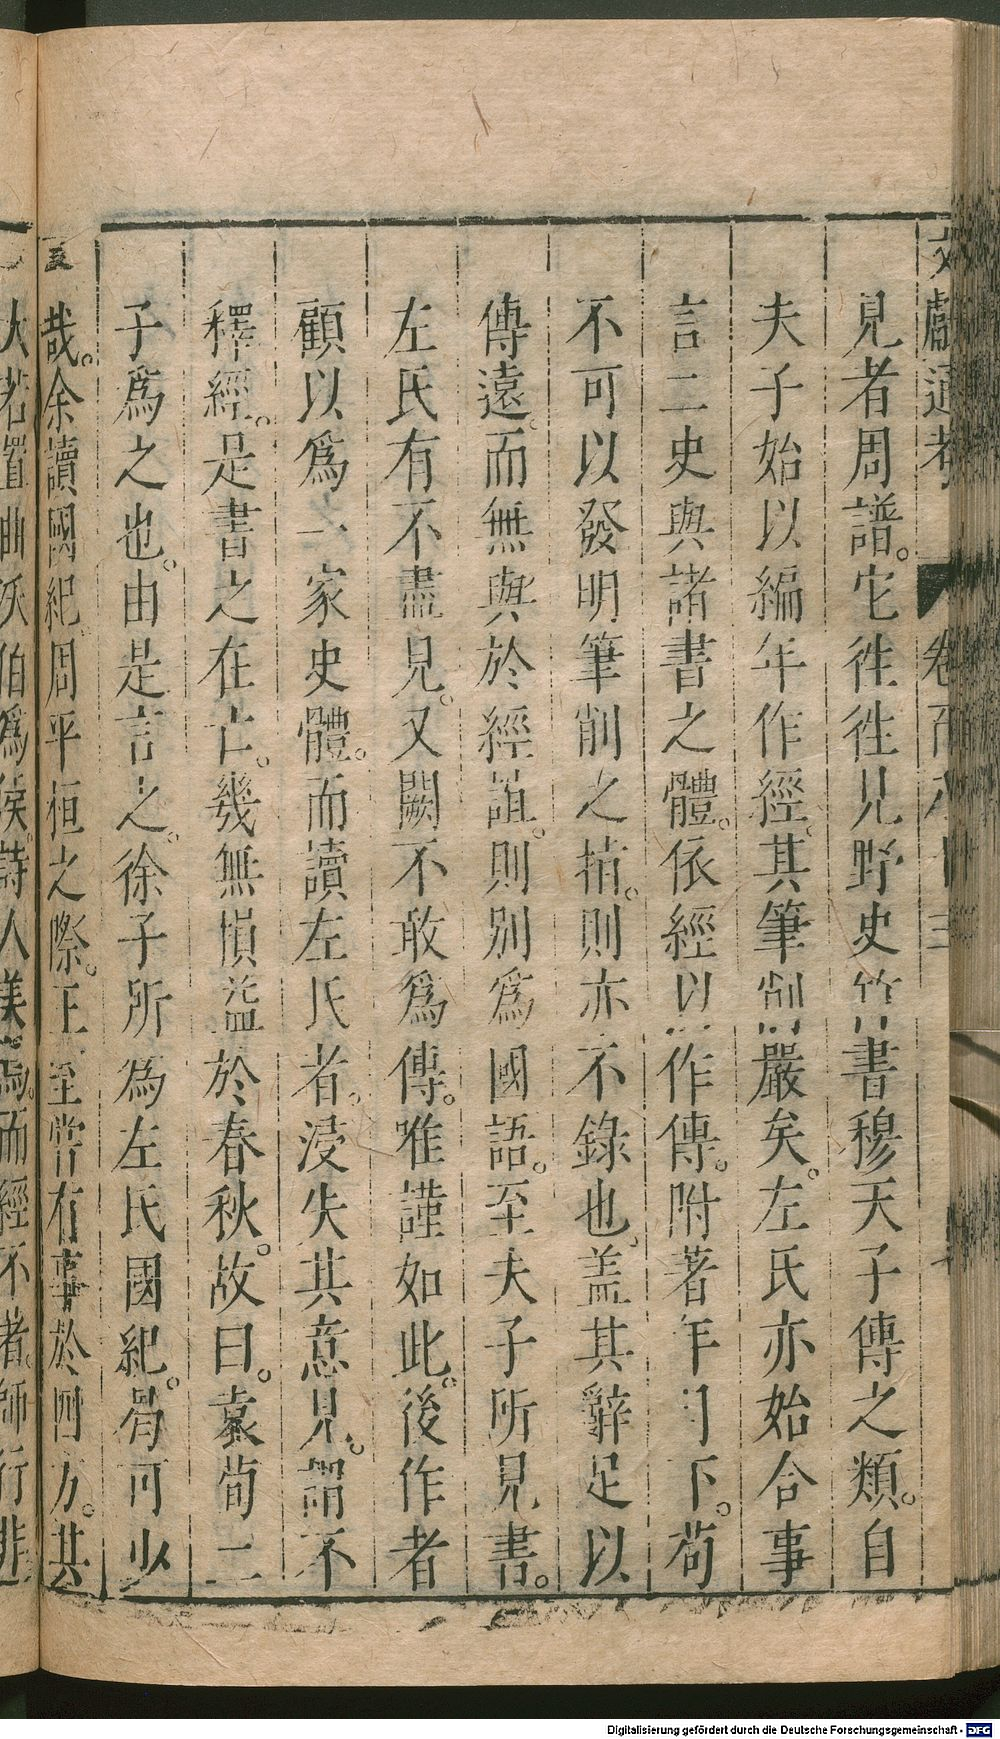 文獻通考 卷百九十三
見者周譜。它徃徃見野史竹書穆天子傳之類。自
夫子始以編年作經。其筆削嚴矣。左氏亦始合事
言二史與諸書之體。依經以作傳。附著年月下。苟
不可以發明筆削之指。則亦不錄也。盖其辭足以
傳遠。而無與於經誼。則别爲國語。至夫子所見書。
左氏有不盡見。又闕不敢爲傳。唯謹如此。後作者
顧以爲一家史體。而讀左氏者。浸失其意見。謂不
釋經。是書之在亡。幾無損益於春秋。故曰。袁荀二
子爲之也。由是言之。徐子所爲左氏國紀。曷可少
哉。余讀國紀。周平桓之際。王室嘗有事於四方。其
大若置曲沃伯爲侯。詩人美焉。而經不著。師行非
五
Digitalisierung gefördert durch die Deutsche Forschungsgemeinschaft - DFG